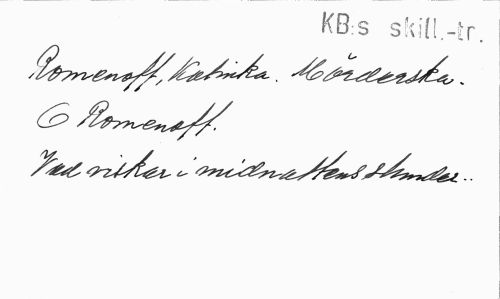 KB:s skill.-tr.
Romenoff, Katinka. Mörderska.
O Romenoff.
Vad viskar i midnattens stunder..